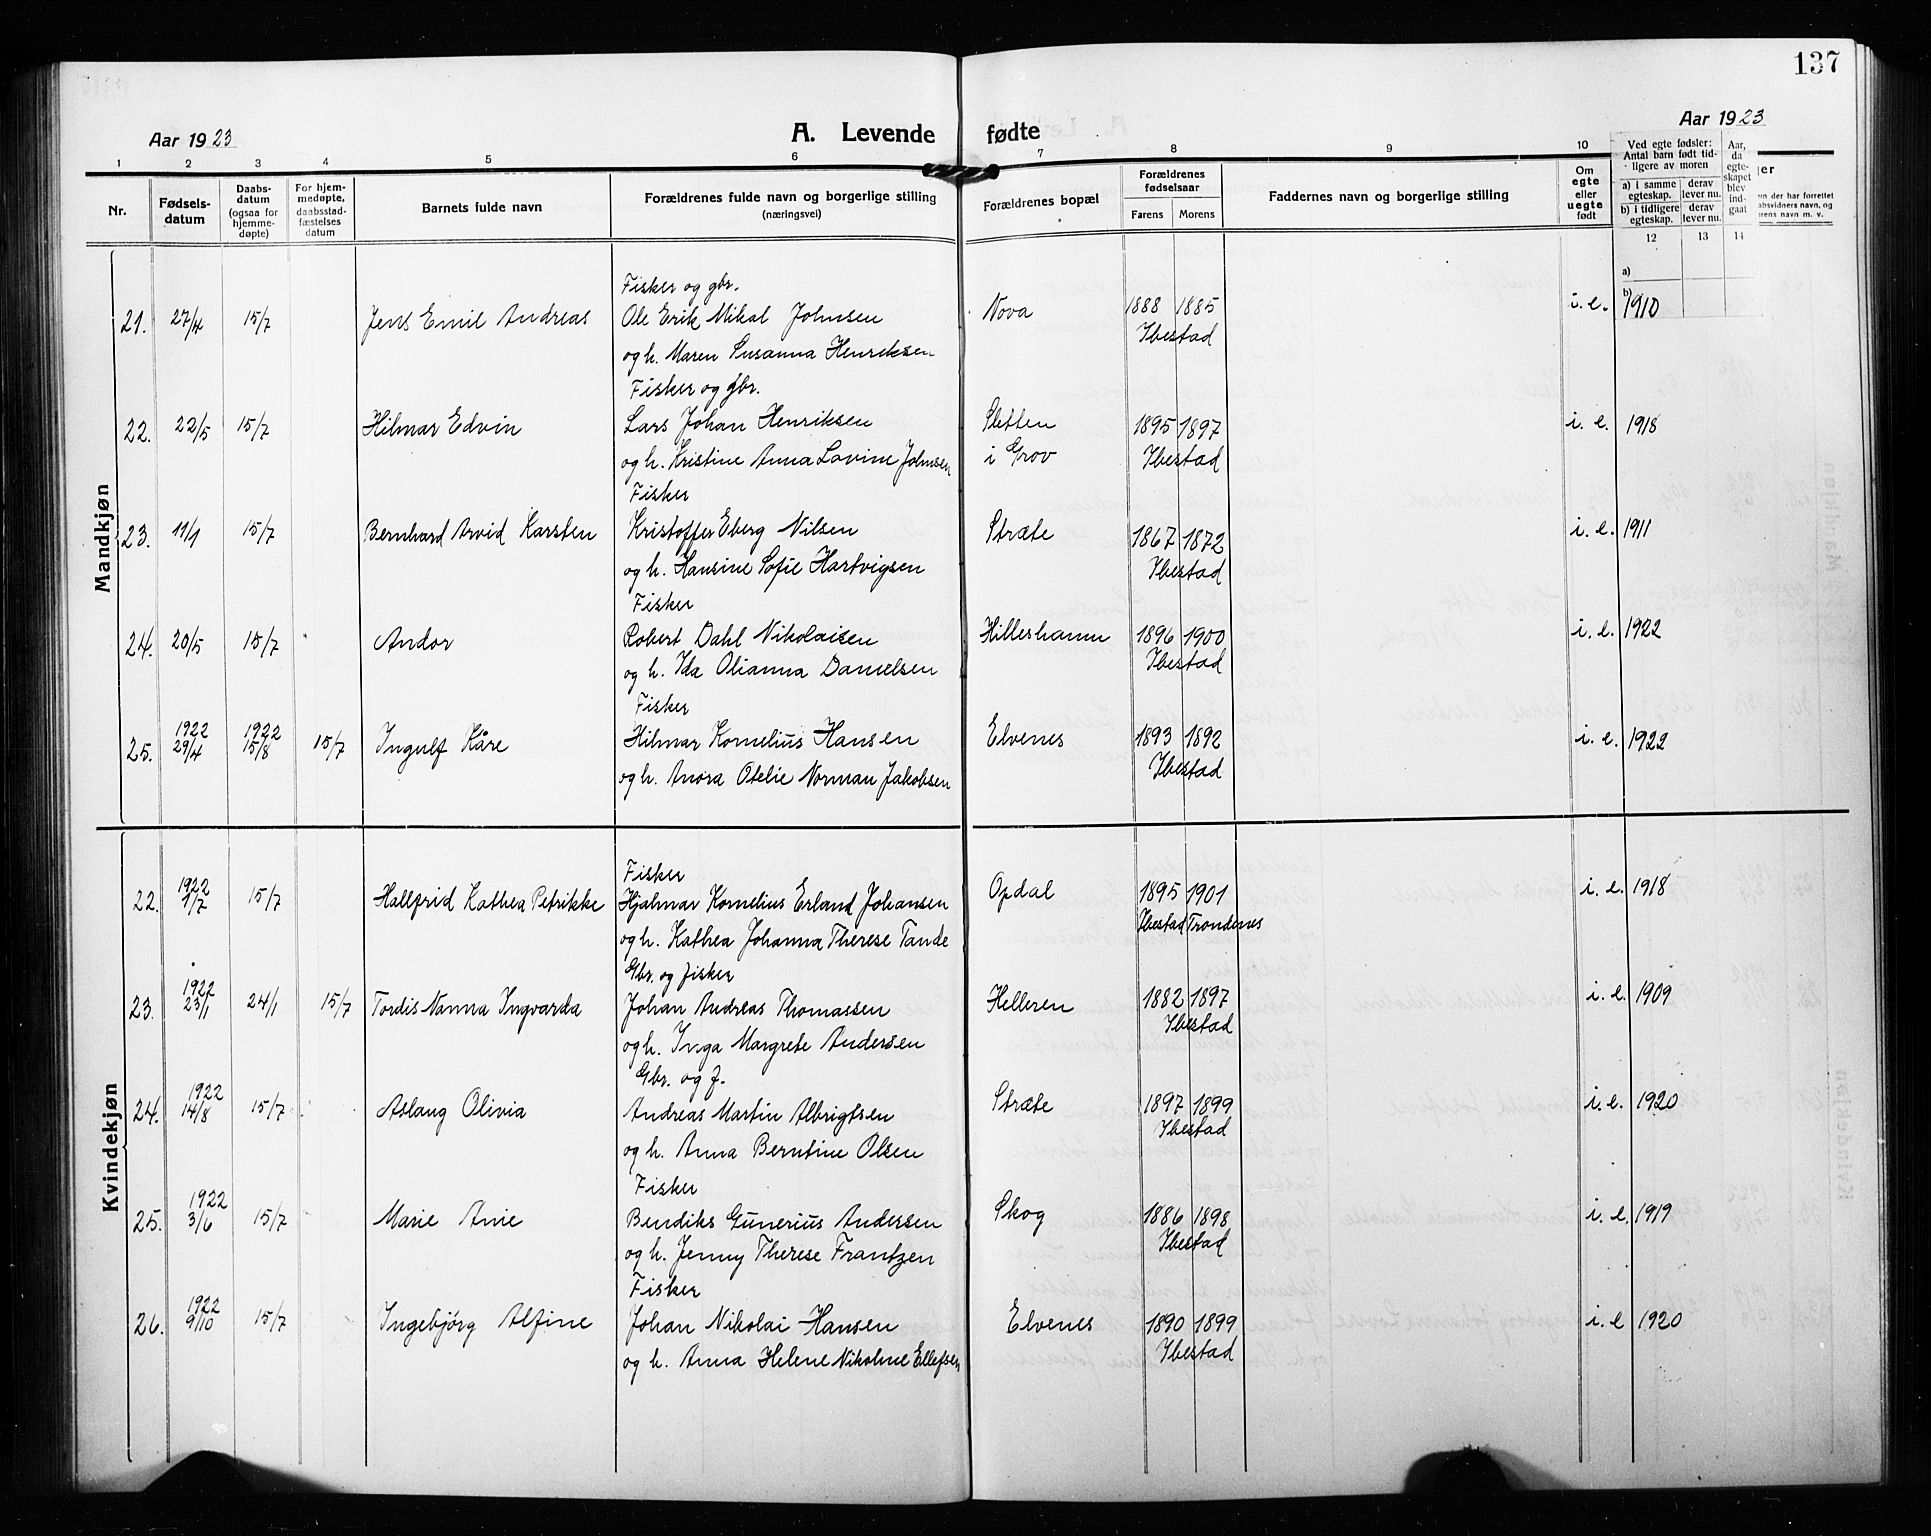 137
Aar 1923
A. Levende fødte
Aar 1923
1 2 3 4 5 6 7 8 9 10
Nr.
Fødsels-
datum
Daabs-
datum
(ogsaa for
hjemme-
døpte)
For hjem-
medøpte,
daabsstad-
fæstelses
datum
Barnets fulde navn
Forældrenes fulde navn og borgerlige stilling
(næringsvei)
Forældrenes bopæl
Forældrenes
fødselsaar
Farens Morens
Faddernes navn og borgerlige stilling
Om
egte
eller
uegte
født
Ved egte fødsler:
Antal barn født tid-
ligere av moren
a) i samme
egteskap.
derav
lever nu.
b) i tidligere
egteskap.
derav
lever nu.
Aar,
da
egte-
skapet
blev
ind-
gaat
12 13 14
a)
b)
Mandkjøn
Fisker og gbr.
21. 27/4 15/7 Jens Emil Andreas Ole Erik Mikal Johnsen Nova 1888 1885 i. e. 1910
og h. Maren Susanna Henriksen Ibestad
Fisker og gbr.
22. 22/5 15/7 Hilmar Edvin Lars Johan Henriksen Sletten 1895 1897 i. e. 1918
og h. Kristine Anna Lovine Johnsen i Grov Ibestad
Fisker
23. 11/1 15/7 Bernhard Arvid Karsten Kristoffer Eberg Nilsen Stræte 1867 1872 i. e. 1911
og h. Hansine Sofie Hartvigsen Ibestad
Fisker
24. 20/5 15/7 Andor Robert Dahl Nikolaisen Hilleshamn 1896 1900 i. e. 1922
og h. Ida Olianna Danielsen Ibestad
Fisker
25. 1922 29/4 1922 15/8 15/7 Ingulf Kåre Hilmar Kornelius Hansen Elvenes 1893 1892 i. e. 1922
og h. Anora Otelie Norman Jakobsen Ibestad
Kvindekjøn
Fisker
22. 1922 1/7 15/7 Hallfrid Kathea Petrikke Hjalmar Kornelius Erland Johansen Opdal 1895 1901 i. e. 1918
og h. Kathea Johanna Therese Tande Ibestad Trondenes
Gbr. og fisker
23. 1922 23/1 24/1 15/7 Tordis Nanna Ingvarda Johan Andreas Thomassen Helleren 1882 1897 i. e. 1909
og h. Inga Margrete Andersen Ibestad
Gbr. og f.
24. 1922 14/8 15/7 Aslaug Olivia Andreas Martin Albrigtsen Stræte 1897 1899 i. e. 1920
og h. Anna Berntine Olsen Ibestad
Fisker
25. 1922 3/6 15/7 Marie Anie Bendiks Gunerius Andersen Skog 1886 1898 i. e. 1919
og h. Jenny Therese Frantzen Ibestad
Fisker
26. 1922 9/10 15/7 Ingebjørg Alfine Johan Nikolai Hansen Elvenes 1890 1899 i. e 1920
og h. Anna Helene Nikoline Ellefsen Ibestad